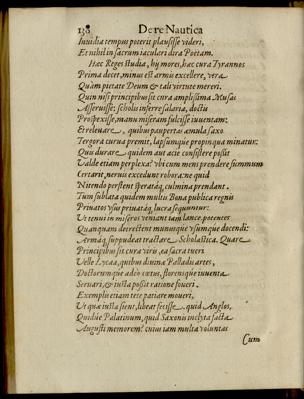 138 De re Nautica
Inuidia tempus poterit plausisse videri,
Et nihil in sacrum iaculari dira Poëtam.
Hac Reges studia, hy mores, hac cura Tyrannos
Prima decet, minus est armis excellere, vera
Quàm pietate Deum & tali virtute mereri.
Quin nisi principibus sit cura amplissima Musas
Asseruisse: scholis inserre salaria, doctis
Prospexisse, manu miseram fulcisse iuuentam:
Et releuare, quibus paupertas æmula saxo
Tergora curua premit, lapsumque propinqua minatur:
Quu durare quidem aut acie consistere possit
Valde etiam perplexa? vbi cum mens prendere summum
Certarit, neruis excedunt robora: ne quid
Nitendo perstent speratáq, culmina prendant.
Tum sublata quidem multu Bona publica regnis
Priuatos vsus priuatáq, lucra sequuntur:
Vt tenui in miseros veniant tam lance, poëntes
Quanquam decrescent munuique ysumque docendi:
Armáq, suppudeat tractare Scholastica. Quare
Principibus sit cura viris, ea sacra tueri
Velle Lycæa, quibus diuinæ Palladis artes,
Doctorumque adeo cœtus, florensque iuuenta
Seruari, & iusta possit ratione foueri.
Exemplis etiam tete patiare moueri,
Vt quæ iusta sient, libeat fecisse. quid Anglos,
Quidue Palatinum, quid Saxonis inclyta facta
Augusti memorem? cuius iam multa voluntas
Cum